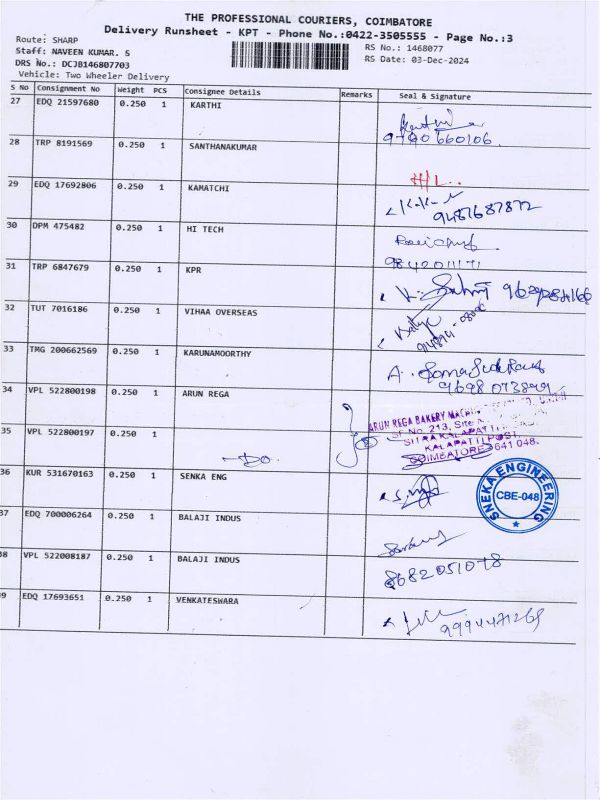 THE PROFESSIONAL COURIERS, COIMBATORE
Delivery Runsheet - KPT - Phone No.:0422-3505555 - Page No.:3
Route: SHARP
Staff: NAVEEN KUMAR. S
DRS No.: DCJB146807703
Vehicle: Two Wheeler Delivery
RS No.: 1468077
RS Date: 03-Dec-2024
S No Consignment No Weight PCS Consignee Details Remarks Seal & Signature
27 EDQ 21597680 0.250 1 KARTHI
28 TRP 8191569 0.250 1 SANTHANAKUMAR
H/L..
29 EDQ 17692806 0.250 1 KAMATCHI
9487687872
30 DPM 475482 0.250 1 HI TECH
31 TRP 6847679 0.250 1 KPR
32 TUT 7016186 0.250 1 VIHAA OVERSEAS
33 TMG 200662569 0.250 1 KARUNAMOORTHY
34 VPL 522800198 0.250 1 ARUN REGA
ARUN REGA BAKERY
SF No. 213, Site
SITRA KALAPATTI
KALAPATTI POST,
COIMBATORE 641 048.
35 VPL 522800197 0.250 1 -Do-
36 KUR 531670163 0.250 1 SENKA ENG
SNEKA ENGINEERING
CBE-048
37 EDQ 700006264 0.250 1 BALAJI INDUS
38 VPL 522008187 0.250 1 BALAJI INDUS
8682051078
39 EDQ 17693651 0.250 1 VENKATESWARA
9994471269